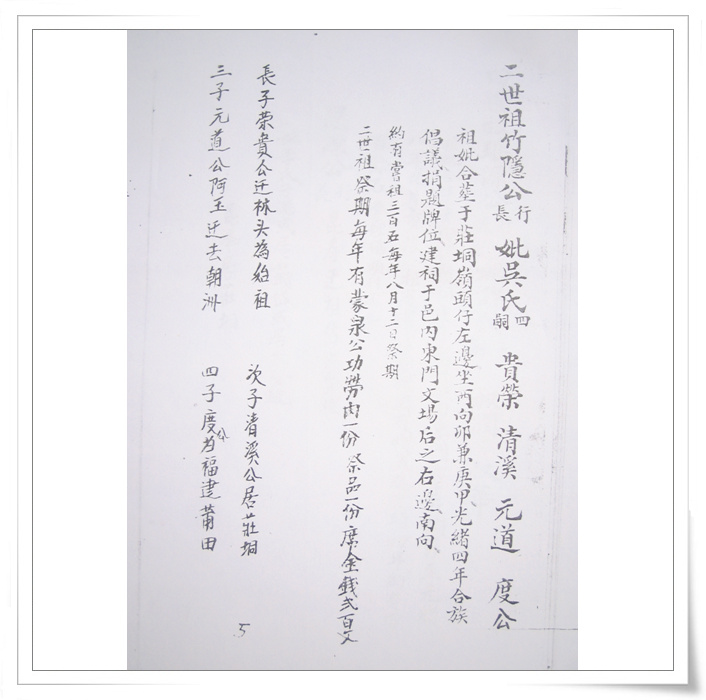 二世祖竹隱公行長 妣吳氏四嗣 貴榮 清溪 元道 度公
祖妣合墓于莊垌嶺頭仔左邊坐酉向卯兼庚甲光緒四年合族
倡議捐題牌位建祠于邑內東門文場后之右邊南向
約有嘗租三百五每年八月十二日祭期
二世祖祭期每年有蒙泉公功勞肉一份 祭品一份 席金錢弍百文
長子荣貴公迁林头為始祖 次子清溪公居莊垌
三子元道公阿玉迁去朝洲 四子度公为福建莆田
5